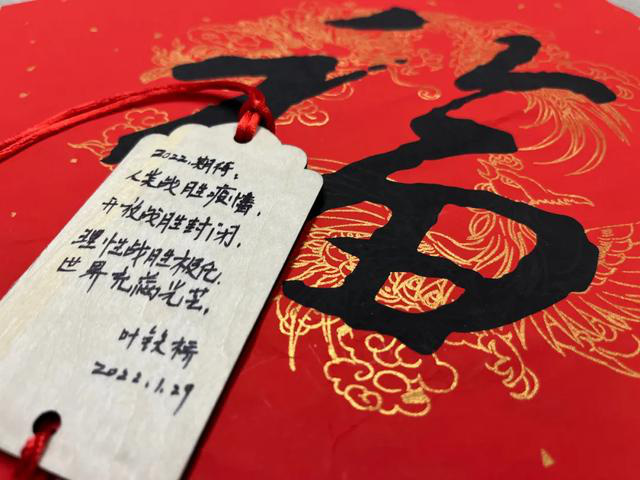 2022.期待：
人类战胜疫情，
开放战胜封闭，
理性战胜极化，
世界充满光芒。
叶铁桥
2022.1.29
福